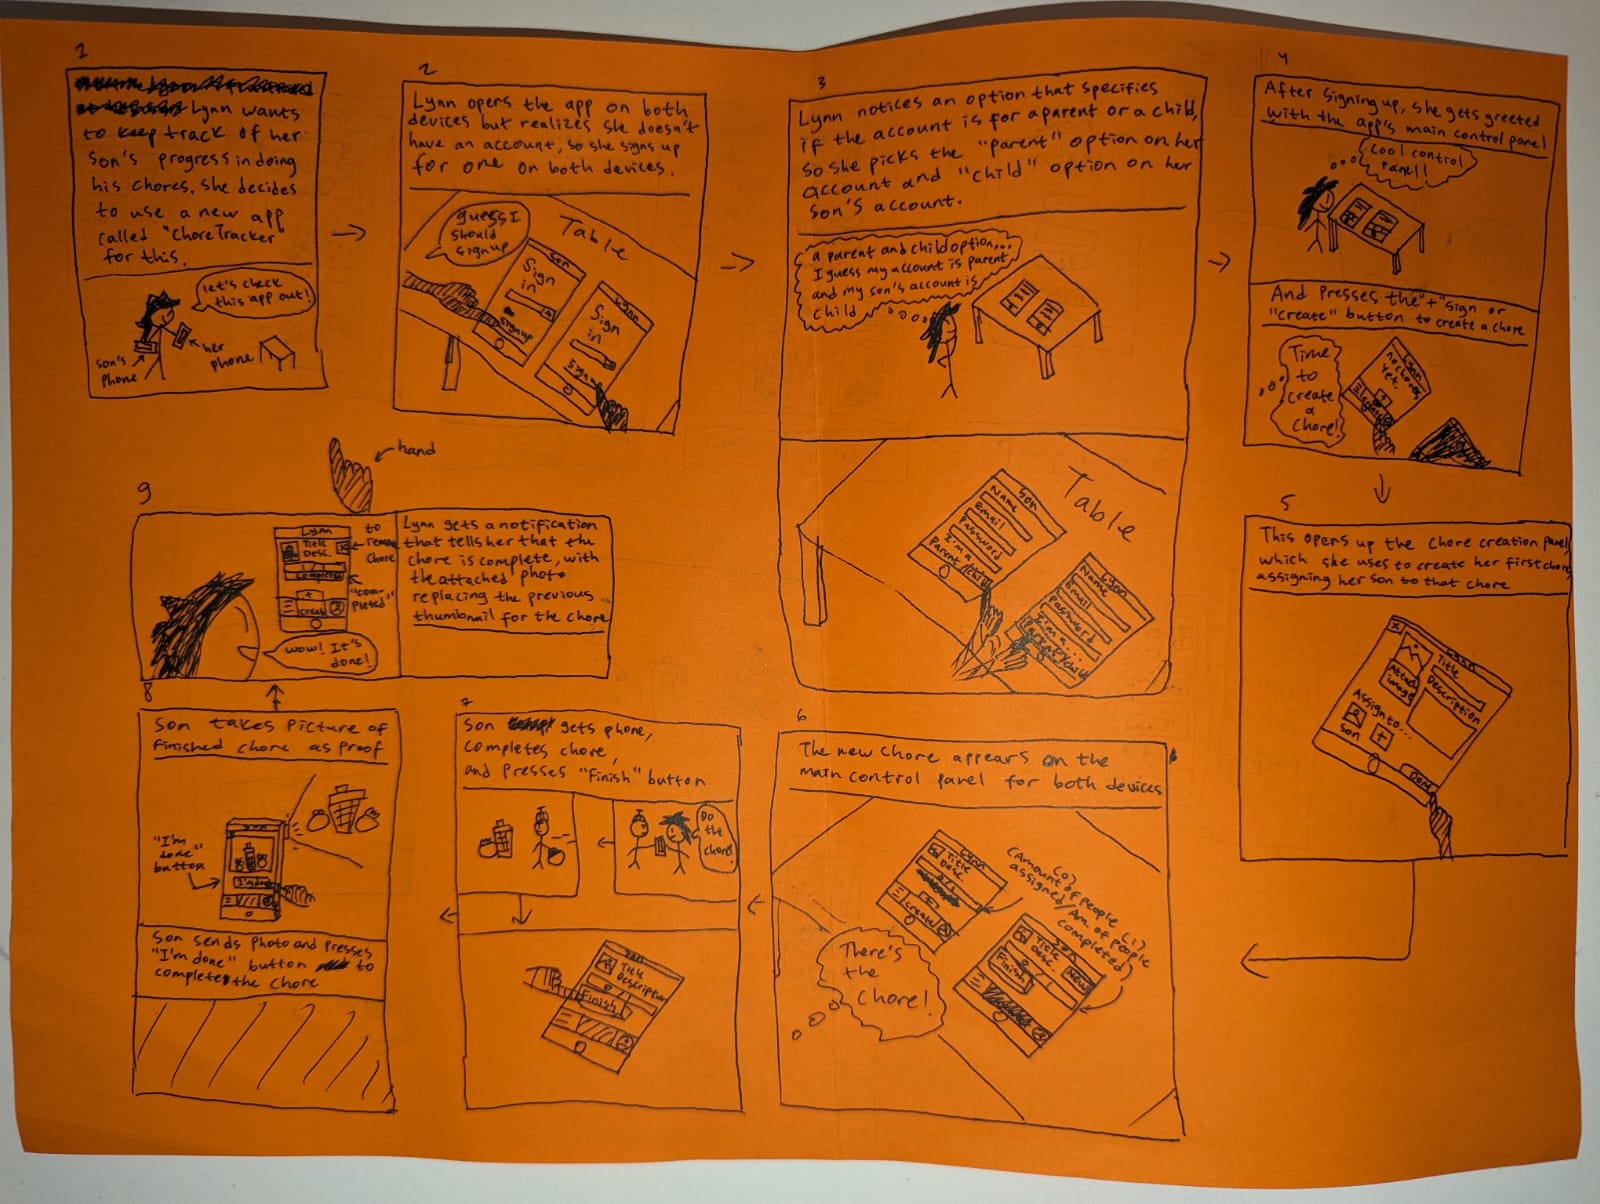 1
Lynn wants
to keep track of her
son's progress in doing
his chores. She decides
to use a new app
called "ChoreTracker
for this.
let's check
this app out!
son's
phone
her
phone
2
Lynn opens the app on both
devices but realizes she doesn't
have an account, so she signs up
for one on both devices.
guess I
should
sign up
Table
son
Sign
in
Sign up
Lynn
Sign
in
Sign up
3
Lynn notices an option that specifies
if the account is for a parent or a child,
so she picks the "parent" option on her
account and "child" option on her
son's account.
a parent and child option...
I guess my account is parent
and my son's account is
child
Table
son
Name
Email
Password
I'm a...
Parent/child
Lynn
Name
Email
Password
I'm a...
Parent/child
4
After signing up, she gets greeted
with the app's main control panel
Cool control
panel!
And presses the "+" sign or
"create" button to create a chore
Time
to
create
a
chore!
Lynn
no chores
yet.
+
create
5
This opens up the chore creation panel
which she uses to create her first chore,
assigning her son to that chore
X
Lynn
Title
Attach
image
Description
Assign to...
son
+
DONE
6
The new chore appears on the
main control panel for both devices
Lynn
Title
Desc.
0/1
+
create
(0)
(Amount of people
assigned/Am. of people
completed)
(1)
son
Title
Desc.
New
Finish
There's
the
chore!
7
Son gets phone,
completes chore,
and presses "Finish" button
Do
the
chore!
son
Title
Description
Finish
8
Son takes picture of
finished chore as proof
"I'm
done"
button
son
I'm done
Son sends photo and presses
"I'm done" button to
completes the chore
9
hand
Lynn
Title
Desc.
X
to
remove
chore
completed
"com-
pleted"
+
create
wow! It's
done!
Lynn gets a notification
that tells her that the
chore is complete, with
the attached photo
replacing the previous
thumbnail for the chore